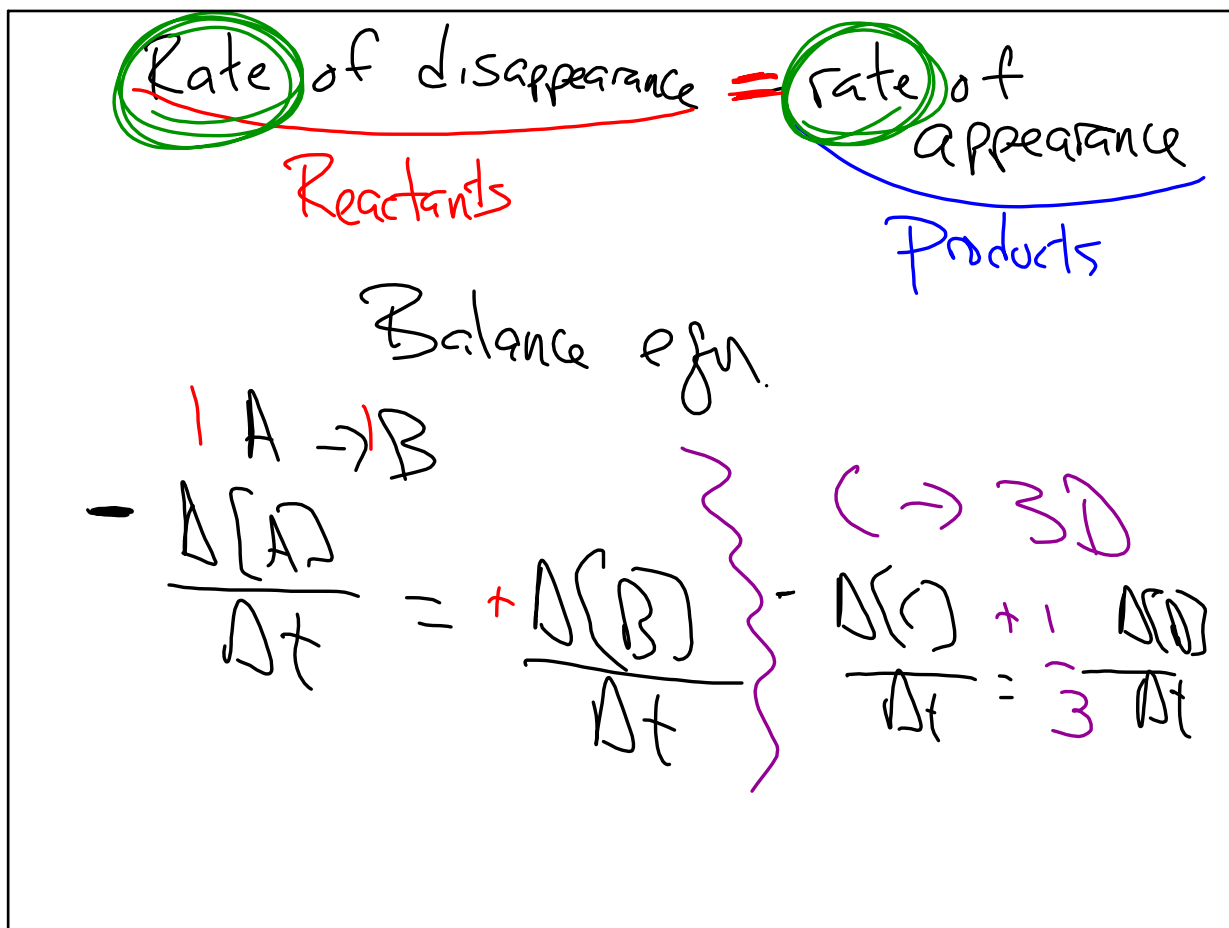 Rate of disappearance = rate of
appearance
Reactants
Products
Balance eqn.
1 A → 1 B
C → 3D
- Δ[A]/Δt = + Δ[B]/Δt
- Δ[C]/Δt = + 1/3 Δ[D]/Δt